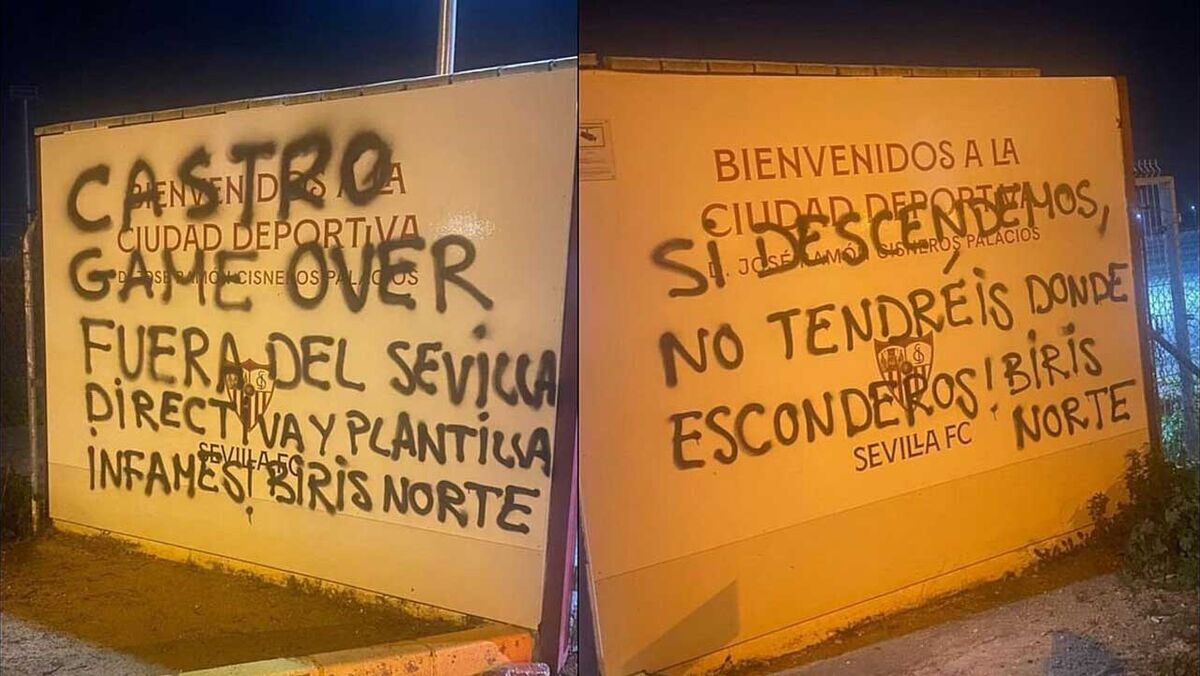 CASTRO
BIENVENIDOS A LA
CIUDAD DEPORTIVA
D. JOSÉ RAMÓN CISNEROS PALACIOS
GAME OVER
FUERA DEL SEVILLA
DIRECTIVA Y PLANTILLA
SEVILLA FC
INFAMES! BIRIS NORTE
BIENVENIDOS A LA
CIUDAD DEPORTIVA
D. JOSÉ RAMÓN CISNEROS PALACIOS
SI DESCENDEMOS,
NO TENDRÉIS DONDE
ESCONDEROS! BIRIS
NORTE
SEVILLA FC